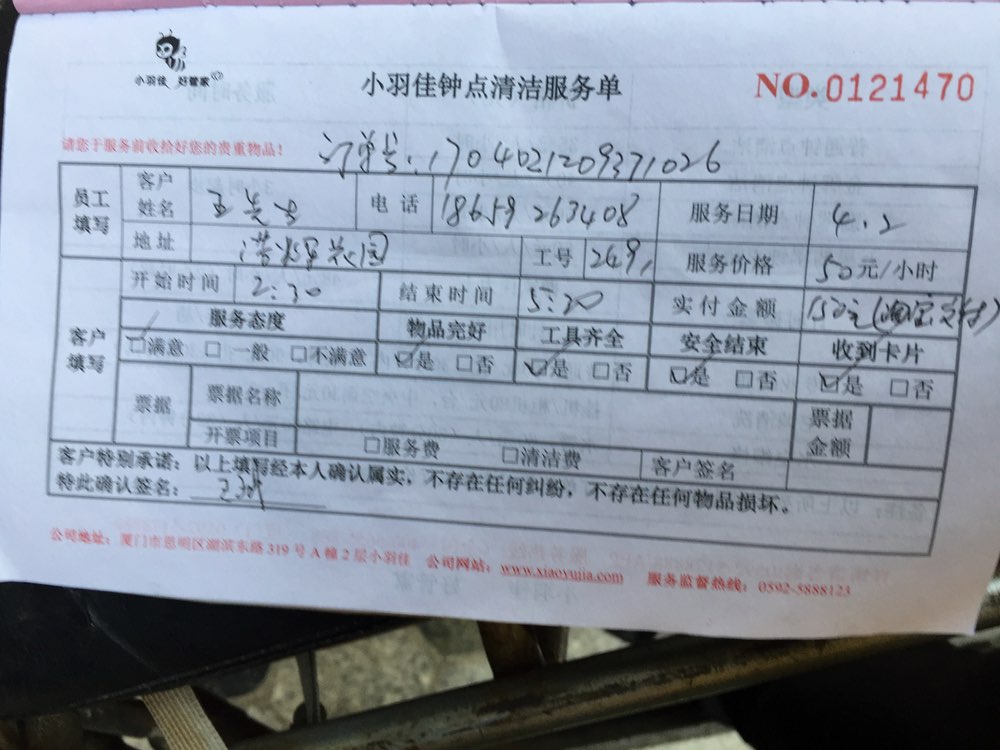 小羽佳 好管家
小羽佳钟点清洁服务单
NO.0121470
请您于服务前收给好您的贵重物品！
订单号:170402120937 1026
员工填写 客户姓名 电话 18659263408 服务日期 4.2
地址 工号 249 服务价格 50元/小时
客户填写 开始时间 2:30 结束时间 5:30 实付金额 150元
服务态度 物品完好 工具齐全 安全结束 收到卡片
☑满意 □一般 □不满意 ☑是 □否 ☑是 □否 ☑是 □否 ☑是 □否
票据 票据名称 票据金额
开票项目 □服务费 □清洁费 客户签名
客户特别承诺：以上填写经本人确认属实，不存在任何纠纷，不存在任何物品损坏。
特此确认签名：
公司地址：厦门市思明区湖滨东路319号A幢2层小羽佳 公司网站：www.xiaoyujia.com 服务监督热线：0592-5888123